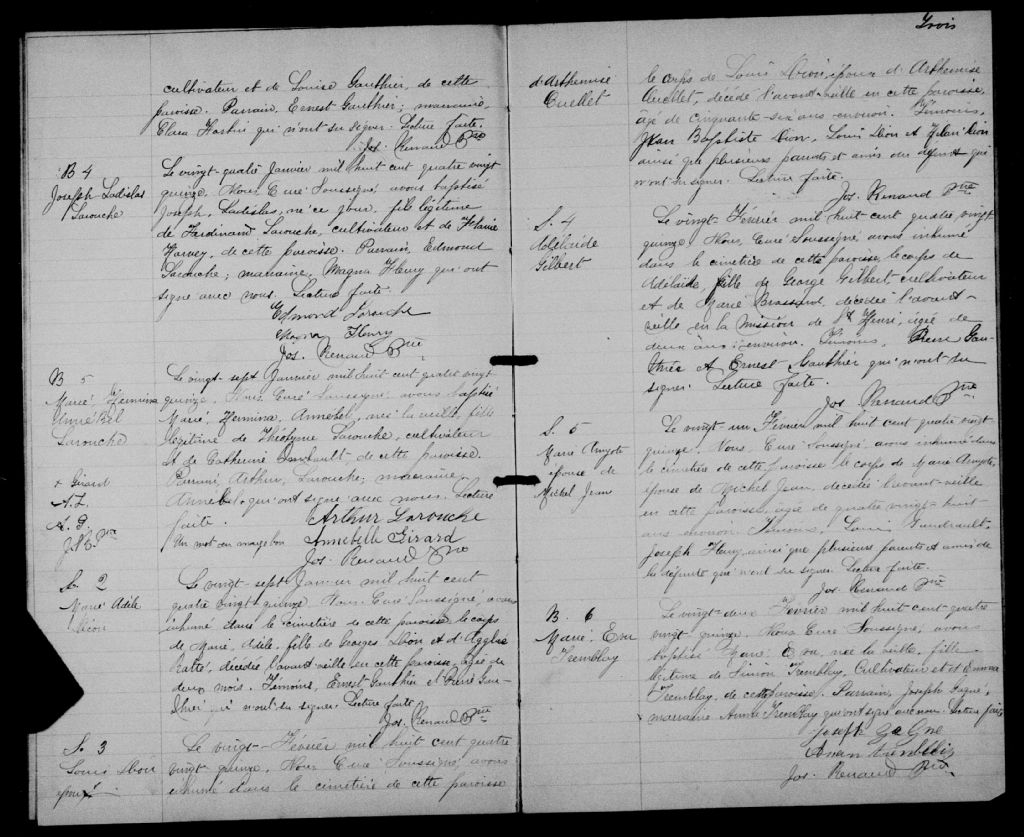 cultivateur et de Louise Gauthier, de cette
paroisse. Parrain, Ernest Gauthier; marraine,
Clara qui n'ont su signer. Lecture faite.
Jos. Renaud Ptre
B 4
Joseph Ladislas
Larouche
Le vingt-quatre Janvier mil huit cent quatre vingt
quinze, Nous Curé Soussigné, avons baptisé
Joseph, Ladislas, né ce jour, fils légitime
de Ferdinand Larouche, cultivateur et de
Harvey, de cette paroisse. Parrain, Edmond
Larouche; marraine, Magna Henry qui ont
signé avec nous. Lecture faite.
Edmond Larouche
Magna Henry
Jos. Renaud Ptre
B 5
Marie Hermina
Annébel
Larouche
+ Girard
A. L.
A. G.
J. R. Ptre
Le vingt-sept Janvier mil huit cent quatre vingt
quinze, Nous Curé Soussigné, avons baptisé
Marie, Hermina, Annébel, née la veille, fille
légitime de Larouche, cultivateur
et de Catherine de cette paroisse.
Parrain, Arthur, Larouche; marraine,
Annebel, qui ont signé avec nous. Lecture
faite.
Arthur Larouche
Un mot en marge bon
Annabelle Girard
Jos. Renaud Ptre
S. 2
Marie Adèle
Dion
Le vingt-sept Janvier mil huit cent
quatre vingt quinze, Nous Curé Soussigné, avons
inhumé dans le cimetière de cette paroisse, le corps
de Marie, Adèle, fille de Georges Dion et d'
décédée l'avant veille en cette paroisse, agée de
deux mois. Témoins, Ernest Gauthier et Pierre Gau-
thier, qui n'ont su signer. Lecture faite.
Jos. Renaud Ptre
S. 3
Louis Dion
époux
Le vingt Février mil huit cent quatre
vingt quinze, Nous Curé Soussigné, avons
inhumé dans le cimetière de cette paroisse
Trois
d'Arthemise
Ouellet
le corps de Louis Dion, époux d'Arthemise
Ouellet, décédé l'avant-veille en cette paroisse,
âgé de cinquante-six ans environ. Témoins,
Jean Baptiste Dion, Louis Dion et Dion
ainsi que plusieurs parents et amis du défunt qui
n'ont su signer. Lecture faite.
Jos. Renaud Ptre
S. 4
Adélaide
Gilbert
Le vingt Février mil huit cent quatre vingt
quinze, Nous, Curé Soussigné avons inhumé
dans le cimetière de cette paroisse, le corps de
Adélaide, fille de George Gilbert, cultivateur
et de Marie Brassard, décédée l'avant-
veille en la mission de St Henri, agée de
deux ans environ. Témoins, Pierre Gau-
thier et Ernest Gauthier qui n'ont su
signer. Lecture faite.
Jos. Renaud Ptre
S. 5
Marie Amyote
épouse de
Michel Jean
Le vingt un Février mil huit cent quatre vingt
quinze, Nous, Curé Soussigné avons inhumé dans
le cimetière de cette paroisse le corps de Marie Amyote,
épouse de Michel Jean, décédée l'avant-veille
en cette paroisse, agée de quatre vingt huit
ans environ. Témoins, Louis
Joseph Henry, ainsi que plusieurs parents et amis de
la défunte qui n'ont su signer. Lecture faite.
Jos. Renaud Ptre
B. 6
Marie, Eva
Tremblay
Le vingt-deux Février mil huit cent quatre
vingt quinze, Nous Curé Soussigné, avons
baptisé Marie, Eva, née la veille, fille
légitime de Simon Tremblay, Cultivateur et d'Emma
Tremblay, de cette paroisse. Parrain, Joseph Gagné,
marraine Anna Tremblay qui ont signé avec nous. Lecture faite
Joseph Gagne
Anna Tremblay
Jos. Renaud Ptre